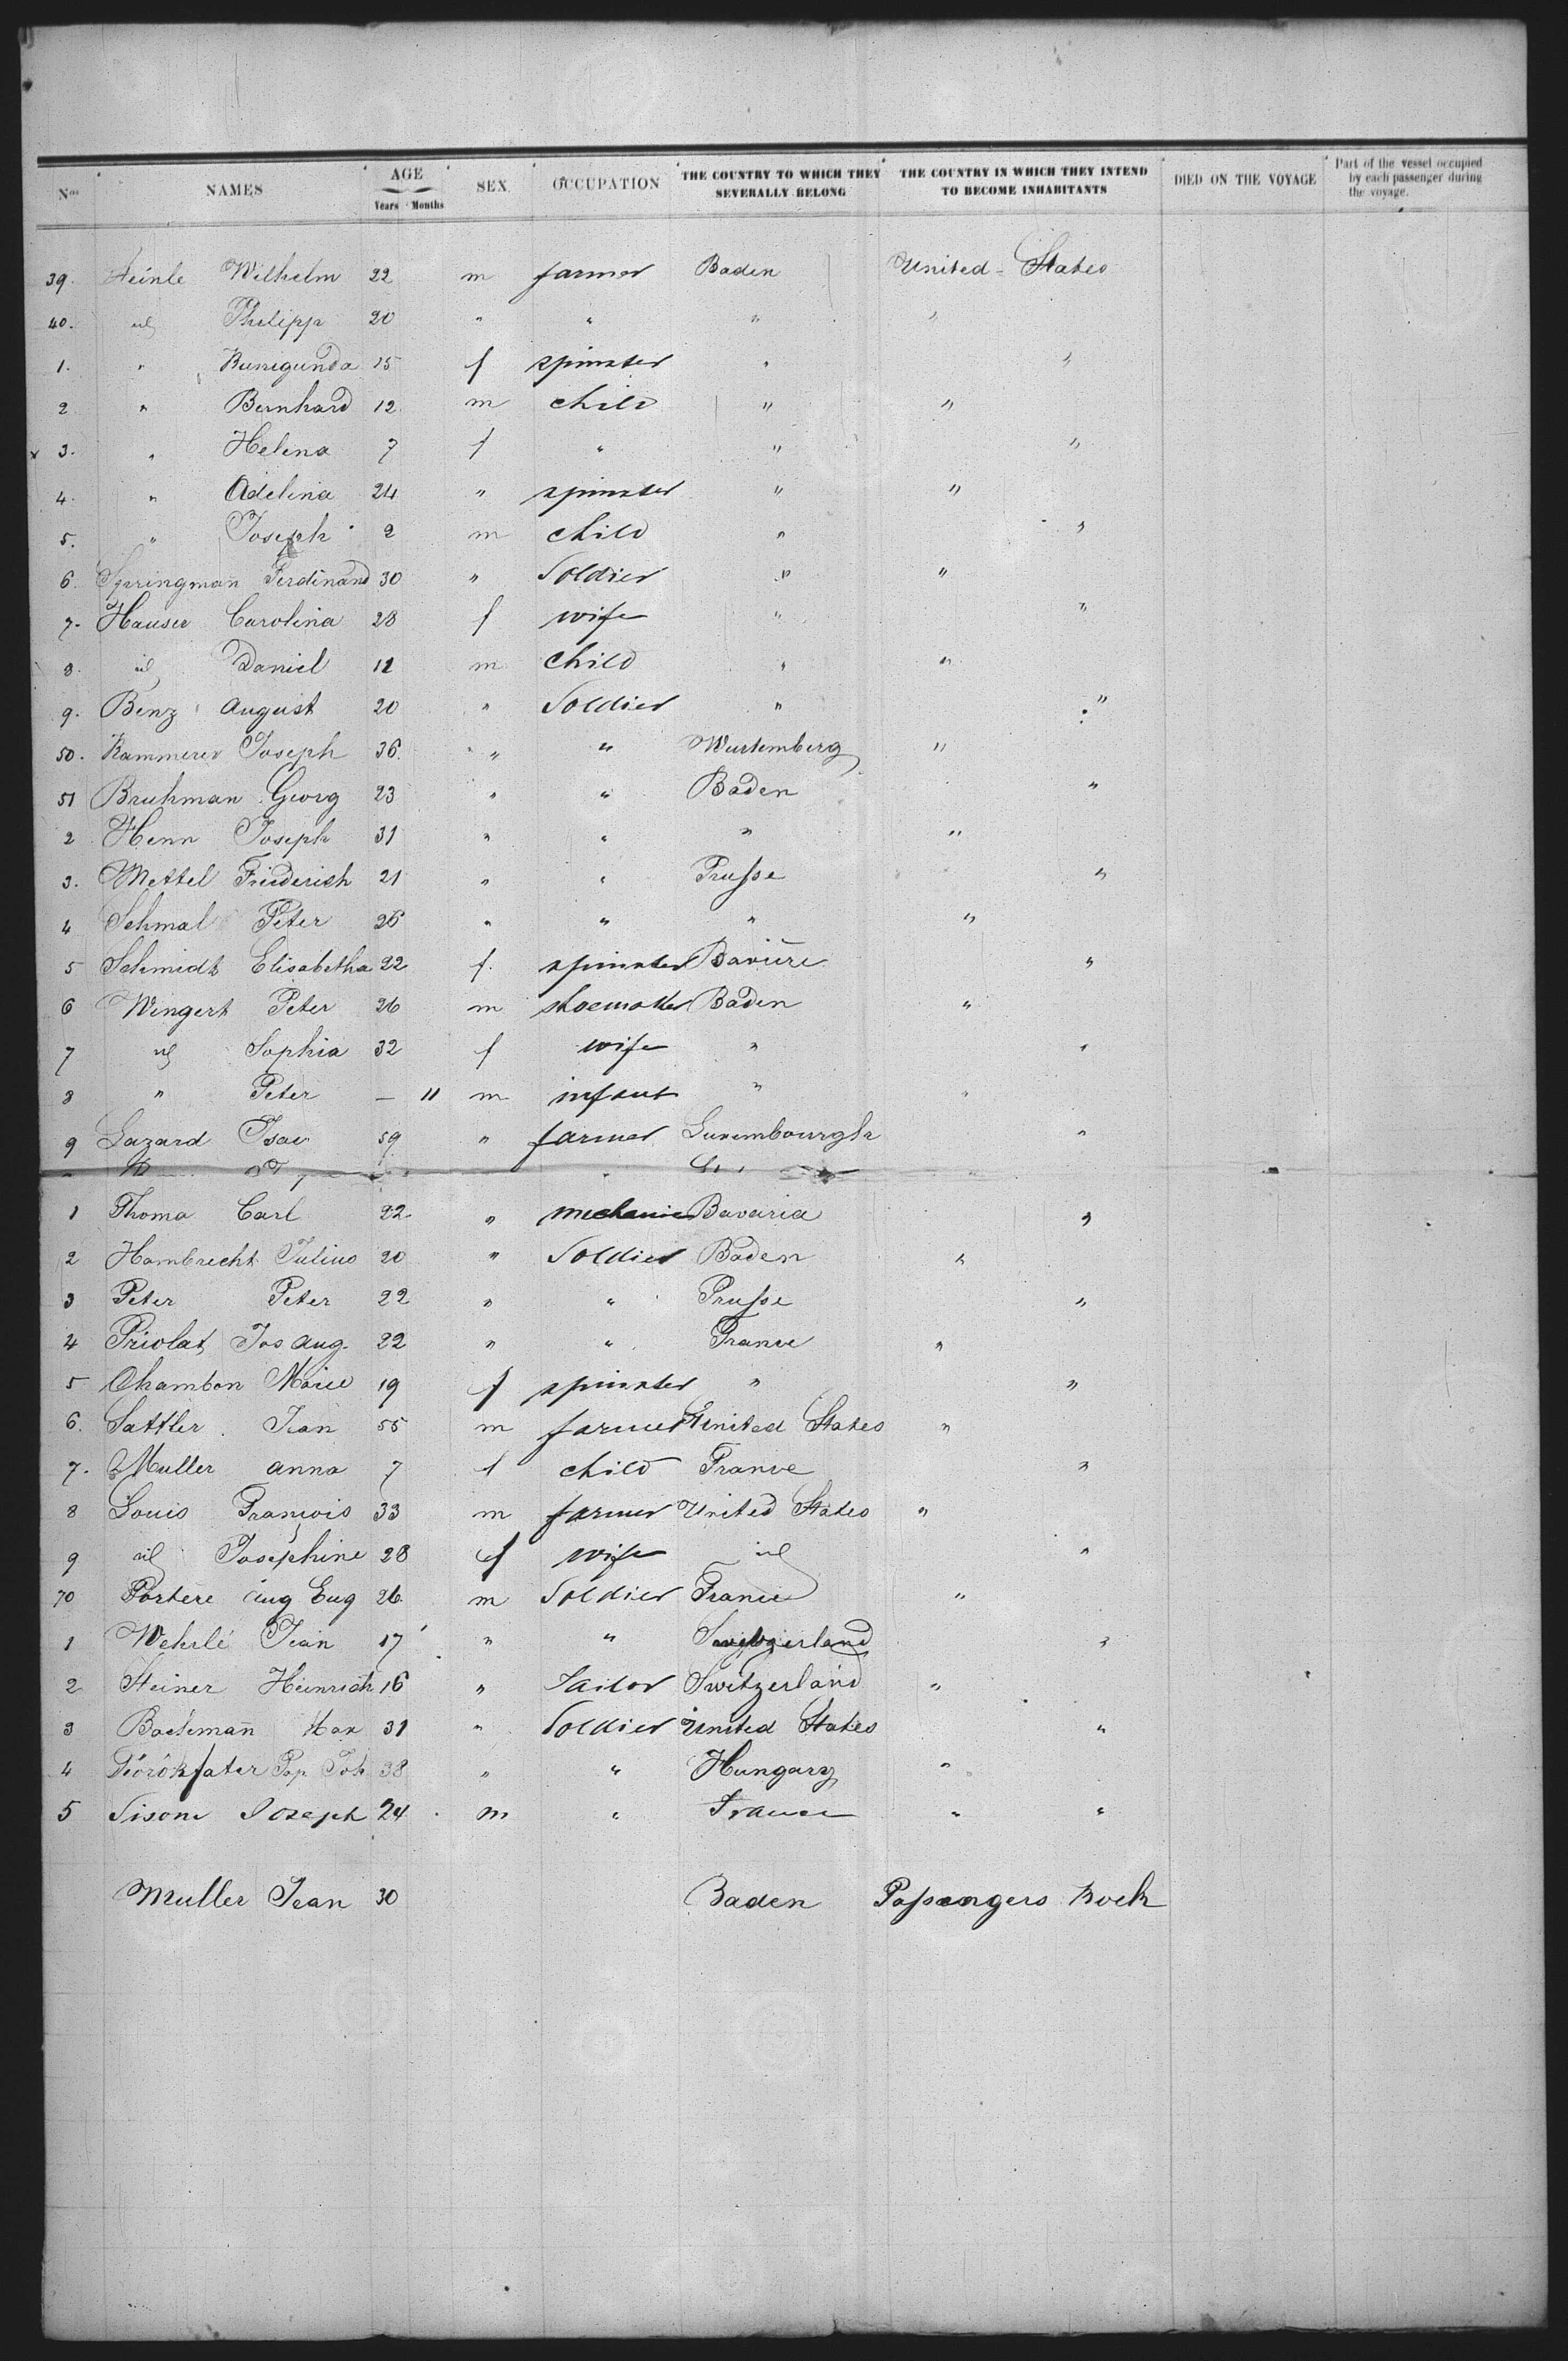 Nos NAMES AGE Years Months SEX OCCUPATION THE COUNTRY TO WHICH THEY SEVERALLY BELONG THE COUNTRY IN WHICH THEY INTEND TO BECOME INHABITANTS DIED ON THE VOYAGE Part of the vessel occupied by each passenger during the voyage.
39. Heinle Wilhelm 22 m farmer Baden United-States
40. id Philipp 20 " " " "
1. " Kunigunda 15 f spinster " "
2 " Bernhard 12 m child " "
x 3. " Helena 7 f " " "
4. " Adelina 24 " spinster " "
5. " Joseph 2 m child " "
6. Springman Ferdinand 30 " Soldier " "
7. Hauser Carolina 28 f wife " "
8. id Daniel 11 m child " "
9. Benz August 20 " Soldier " "
50. Kammerer Joseph 36 " " Wurtemberg "
51 Bruhman Georg 23 " " Baden "
2 Henn Joseph 31 " " " "
3. Mettel Friederich 21 " " Prusse "
4 Schmal Peter 26 " " " "
5 Schmidt Elisabetha 22 f. spinster Bavière "
6 Wingert Peter 26 m shoemaker Baden "
7 id Sophia 32 f wife " "
8 " Peter — 11 m infant " "
9 Lazard Isac 59 " farmer Luxembourgh "
1 Thoma Carl 22 " mechanic Bavaria "
2 Hambrecht Julius 20 " Soldier Baden "
3 Peter Peter 22 " " Prusse "
4 Priolat Jos Aug. 22 " " France "
5 Chambon Marie 19 f spinster " "
6. Sattler Jean 55 m farmer United States "
7. Muller Anna 7 f child France "
8 Louis François 33 m farmer United States "
9 id Josephine 28 f wife id "
70 Portere Aug Eug 26 m Soldier France "
1 Wehrlé Jean 17 " " Switzerland "
2 Steiner Heinrich 16 " Tailor Switzerland "
3 Bachmann Max 31 " Soldier United States "
4 Törökfater Pap Joh 38 " " Hungary "
5 Sisone Joseph 24 m " France " "
Muller Jean 30 Baden Passengers Kock